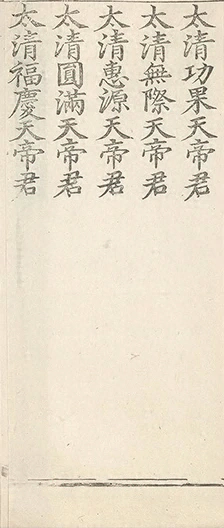 太清功果天帝君
太清無際天帝君
太清惠源天帝君
太清圓滿天帝君
太清福慶天帝君